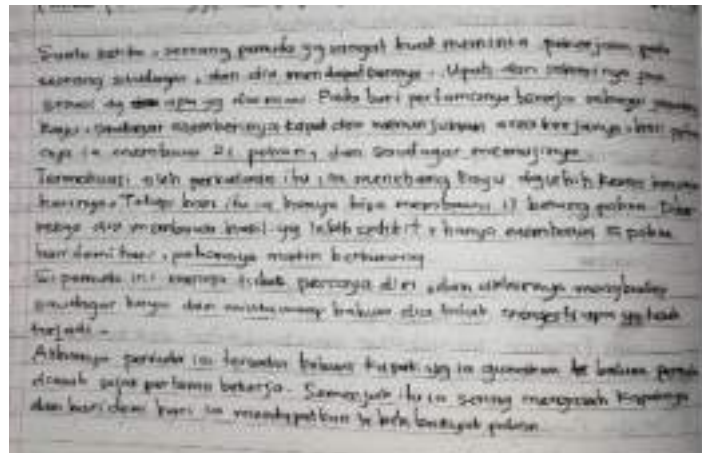 Suatu ketika, seorang pemuda yg sangat kuat meminta pekerjaan pada
seorang saudagar, dan dia mendapatkannya. Upah dan
sesuai dg apa yg Pada hari pertamanya bekerja sebagai
kayu, saudagar memberinya kapak dan menunjukkan area kerjanya, hari
nya ia membawa 21 pohon, dan saudagar memujinya
Termotivasi oleh perkataan itu, ia menebang kayu dg lebih keras
harinya. Tetapi hari itu ia hanya bisa membawa 17 batang pohon.
dia membawa hasil yg lebih sedikit, hanya membawa 5 pohon
hari demi hari, pohonnya makin berkurang
Si pemuda ini merasa tidak percaya diri, dan akhirnya menghadap
saudagar kayu dan bahwa dia tidak mengerti apa yg telah
terjadi.
Akhirnya pemuda ini tersadar bahwa kapak yg ia gunakan itu belum pernah
diasah sejak pertama bekerja. Semenjak itu ia sering mengasah kapaknya
dan hari demi hari ia mendapatkan lebih banyak pohon